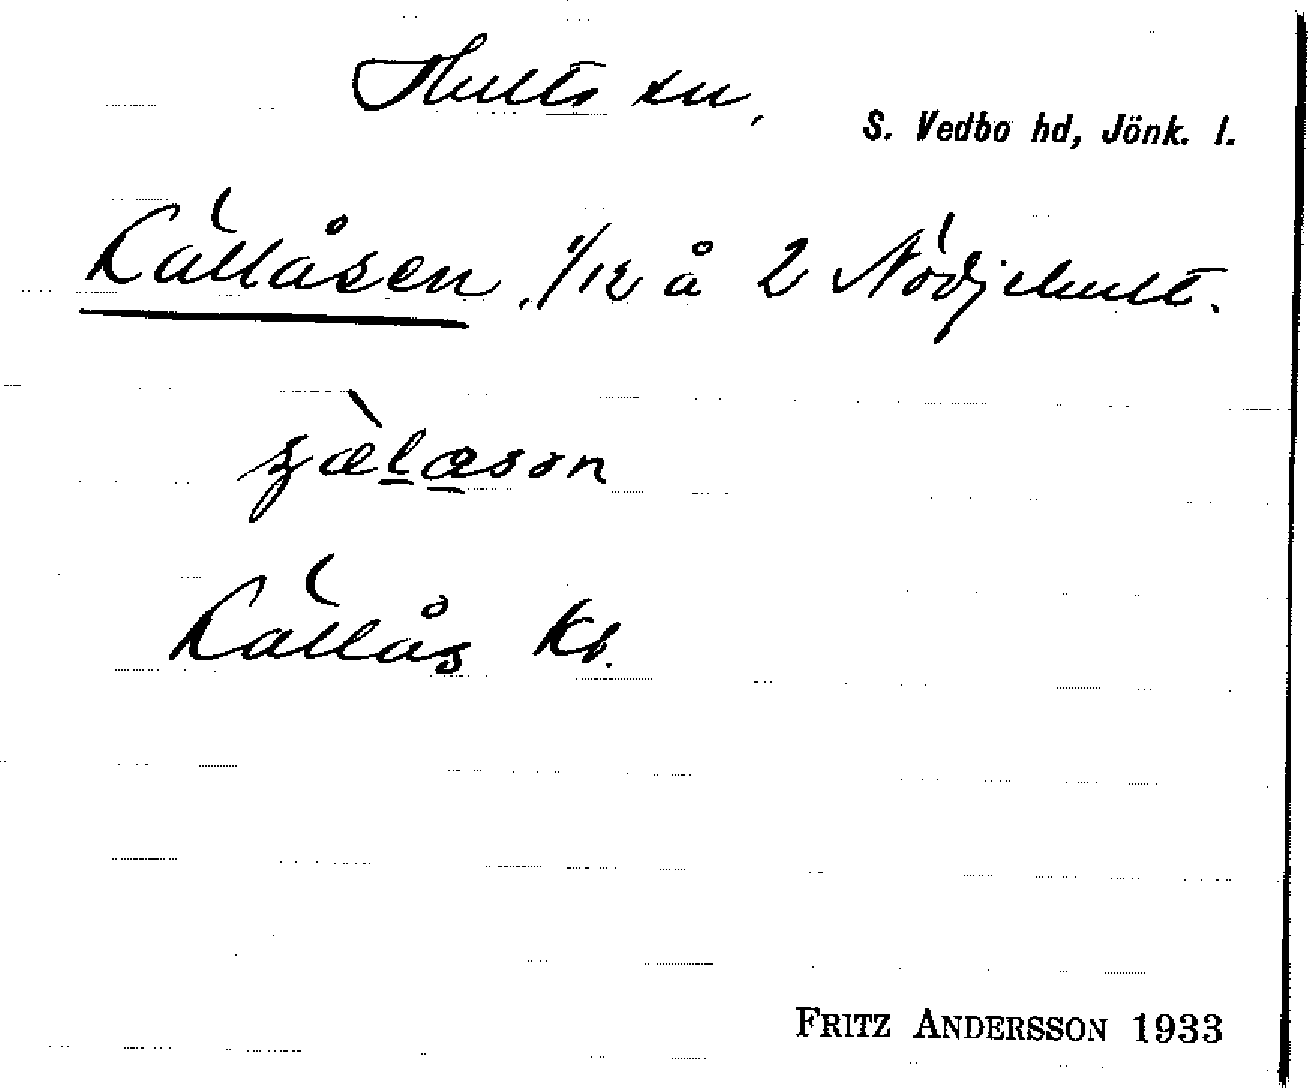 Hults sn,
S. Vedbo hd, Jönk. l.
Källåsen, 1/12 å 2 Nödjehult.
Källås Kt.
FRITZ ANDERSSON 1933